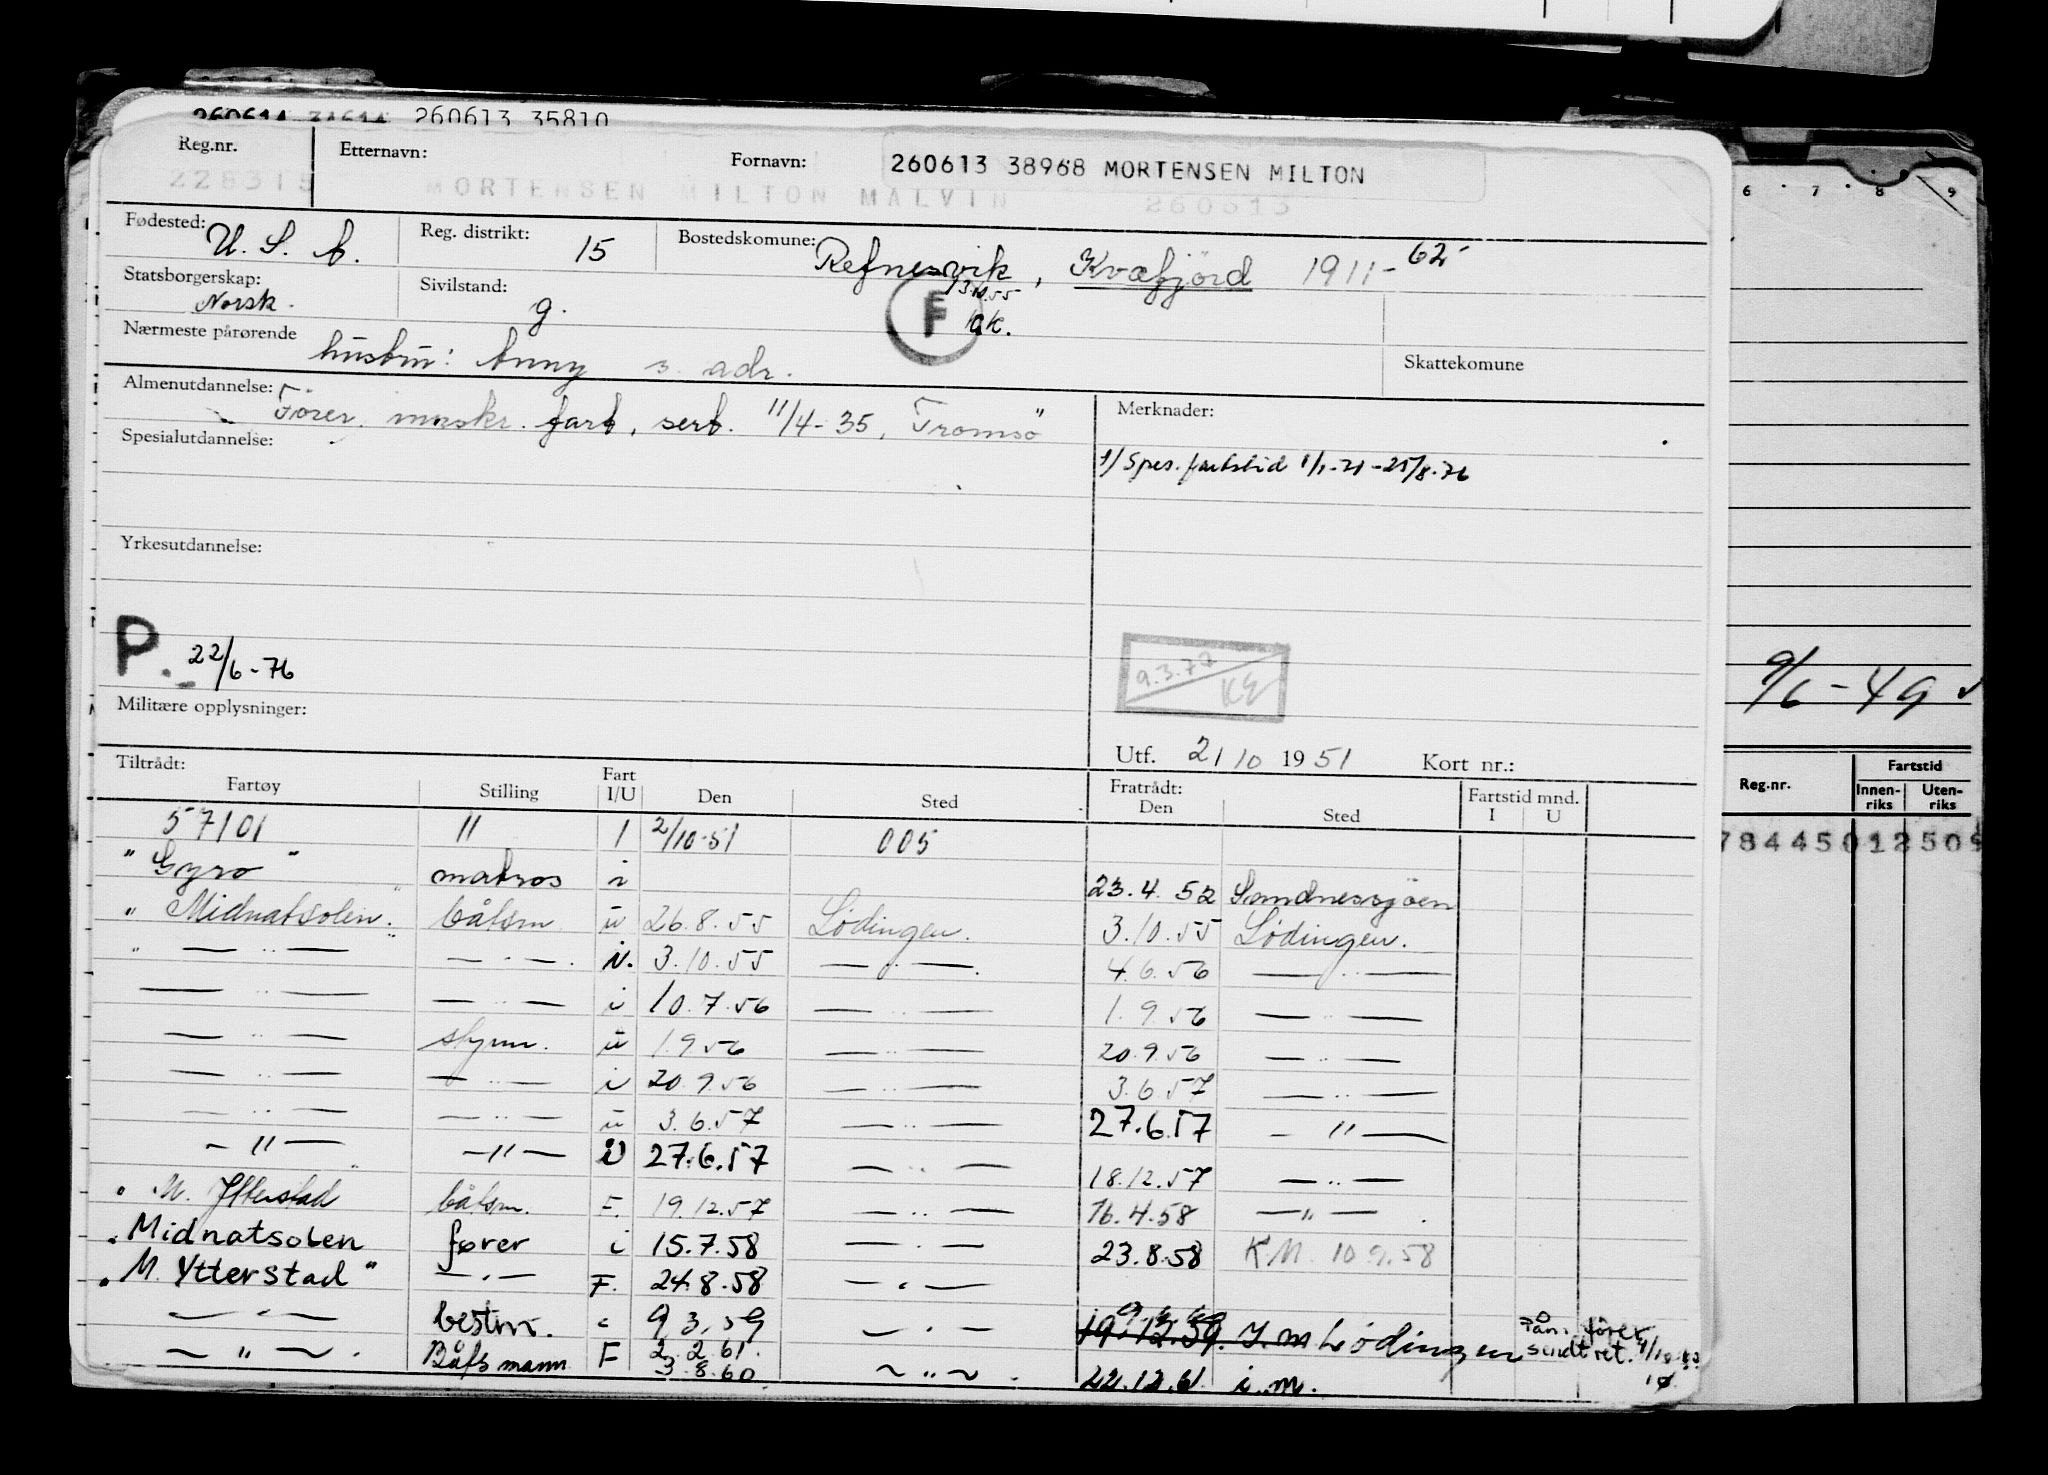 260613 35810
Reg.nr. Etternavn: Fornavn: 260613 38968 MORTENSEN MILTON
228315 MORTENSEN MILTON MALVIN 260613
Fødested: U. S. A. Reg. distrikt: 15 Bostedskomune: Refnesvik, Kvæfjörd 1911-62
Statsborgerskap: Norsk. Sivilstand: g. F ok.
Nærmeste pårørende hustru: Anny s. adr. Skattekomune
Almenutdannelse: Fører. maskr. fart, sert. 11/4-35, Tromsö
Merknader:
Spesialutdannelse:
1/ Spes. fartstid 1/1-71-25/8-76
Yrkesutdannelse:
P. 22/6-76
9.3.72 KE
9/6-49
Militære opplysninger:
Utf. 2/10 1951 Kort nr.:
Tiltrådt: Fratrådt:
Fartøy Stilling Fart I/U Den Sted Den Sted Fartstid mnd. I U
Reg.nr. Fartstid Innen-riks Uten-riks
57101 11 1 2/10-51 005
" Gyro " matros i 23.4.52 Sandnessjöen
" Midnatsolen. båtsm u 26.8.55 Lødingen. 3.10.55 Lødingen.
" — .. — — . — . 3.10.55 — .. —. 4.6.56 — .. —
— .. — — .. — i 10.7.56 — .. — 1.9.56 — .. —
— .. — styrm. u 1.9.56 — .. — 20.9.56 — .. —
— .. — — .. — i 20.9.56 — .. — 3.6.57 — .. —
— .. — — .. — u 3.6.57 — .. — 27.6.57 — " —
— " — — " — 27.6.57 — .. — 18.12.57 — .. —
" M. Ytterstad båtsm. F. 19.12.57 — .. — 16.4.58 — " —
" Midnatsolen fører i 15.7.58 — . — 23.8.58 K M. 10.9.58
" M. Ytterstad " — . — F. 24.8.58 — . —
— " — bestm. 9.3.59 — . — 19.12.59. Lødingen
— " — . Båtsmann F 2.2.61. 3.8.60 — " — . 22.12.61 i. m.